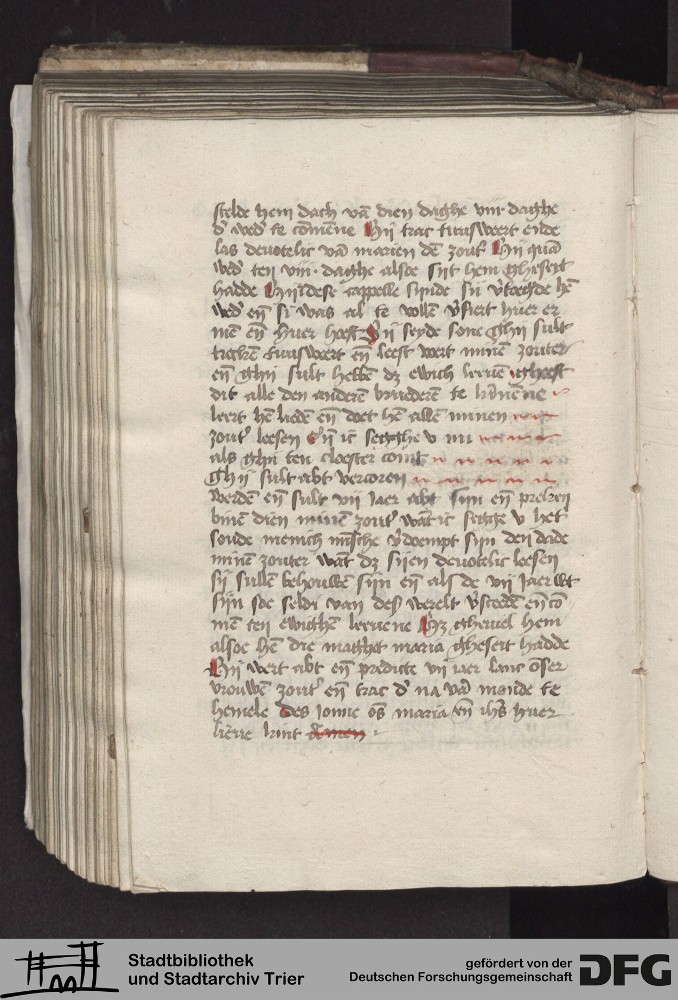 stelde hem dach vā dien daghe viii daghe
d' wed' te comēne Hij trac tuuswert ende
las devotelic vā marien dē zout' Hij quā
wed' ten viii daghe alsoe sijt hem gheseyt
hadde Hij dese cappelle sijnde sij v'toechde hē
wed' eñ si was al te vollē v'siert huer er
mē eñ huer hoeft Sij seyde sone ghij sult
trecken tuuswert eñ leest vort minen zouter
eñ ghij sult hebbē dz ewich levē gheeft
dit alle den anderē bruederē te kinnēne
leert hē lieden eñ doet hē allē minen
zout' leesen Eñ ic segghe v nu
als ghij ten cloester comt
Ghij sult abt vercoren
werden eñ sult vij iaer abt sijn eñ preken
binē dien minē zout' wāt ic segge v het
soude menich mēsche v'doempt sijn den dade
minē zouter wāt dz sijen devotelic leesen
sij sullē behouwēn sijn eñ als de vij iaer wt
sijn soe seldi van des' werelt v'sceedē eñ co
mē ten ewighēn levene Hz gheviel hem
alsoe hē die maghet maria gheseit hadde
Hij wert abt eñ predicte vij iaer lanc onser
vrouwē zout' eñ trac d' na vā mande te
hemele Des jonne ōs maria eñ ihs huer
lieve kint Amen
Stadtbibliothek
und Stadtarchiv Trier
gefördert von der
Deutschen Forschungsgemeinschaft
DFG